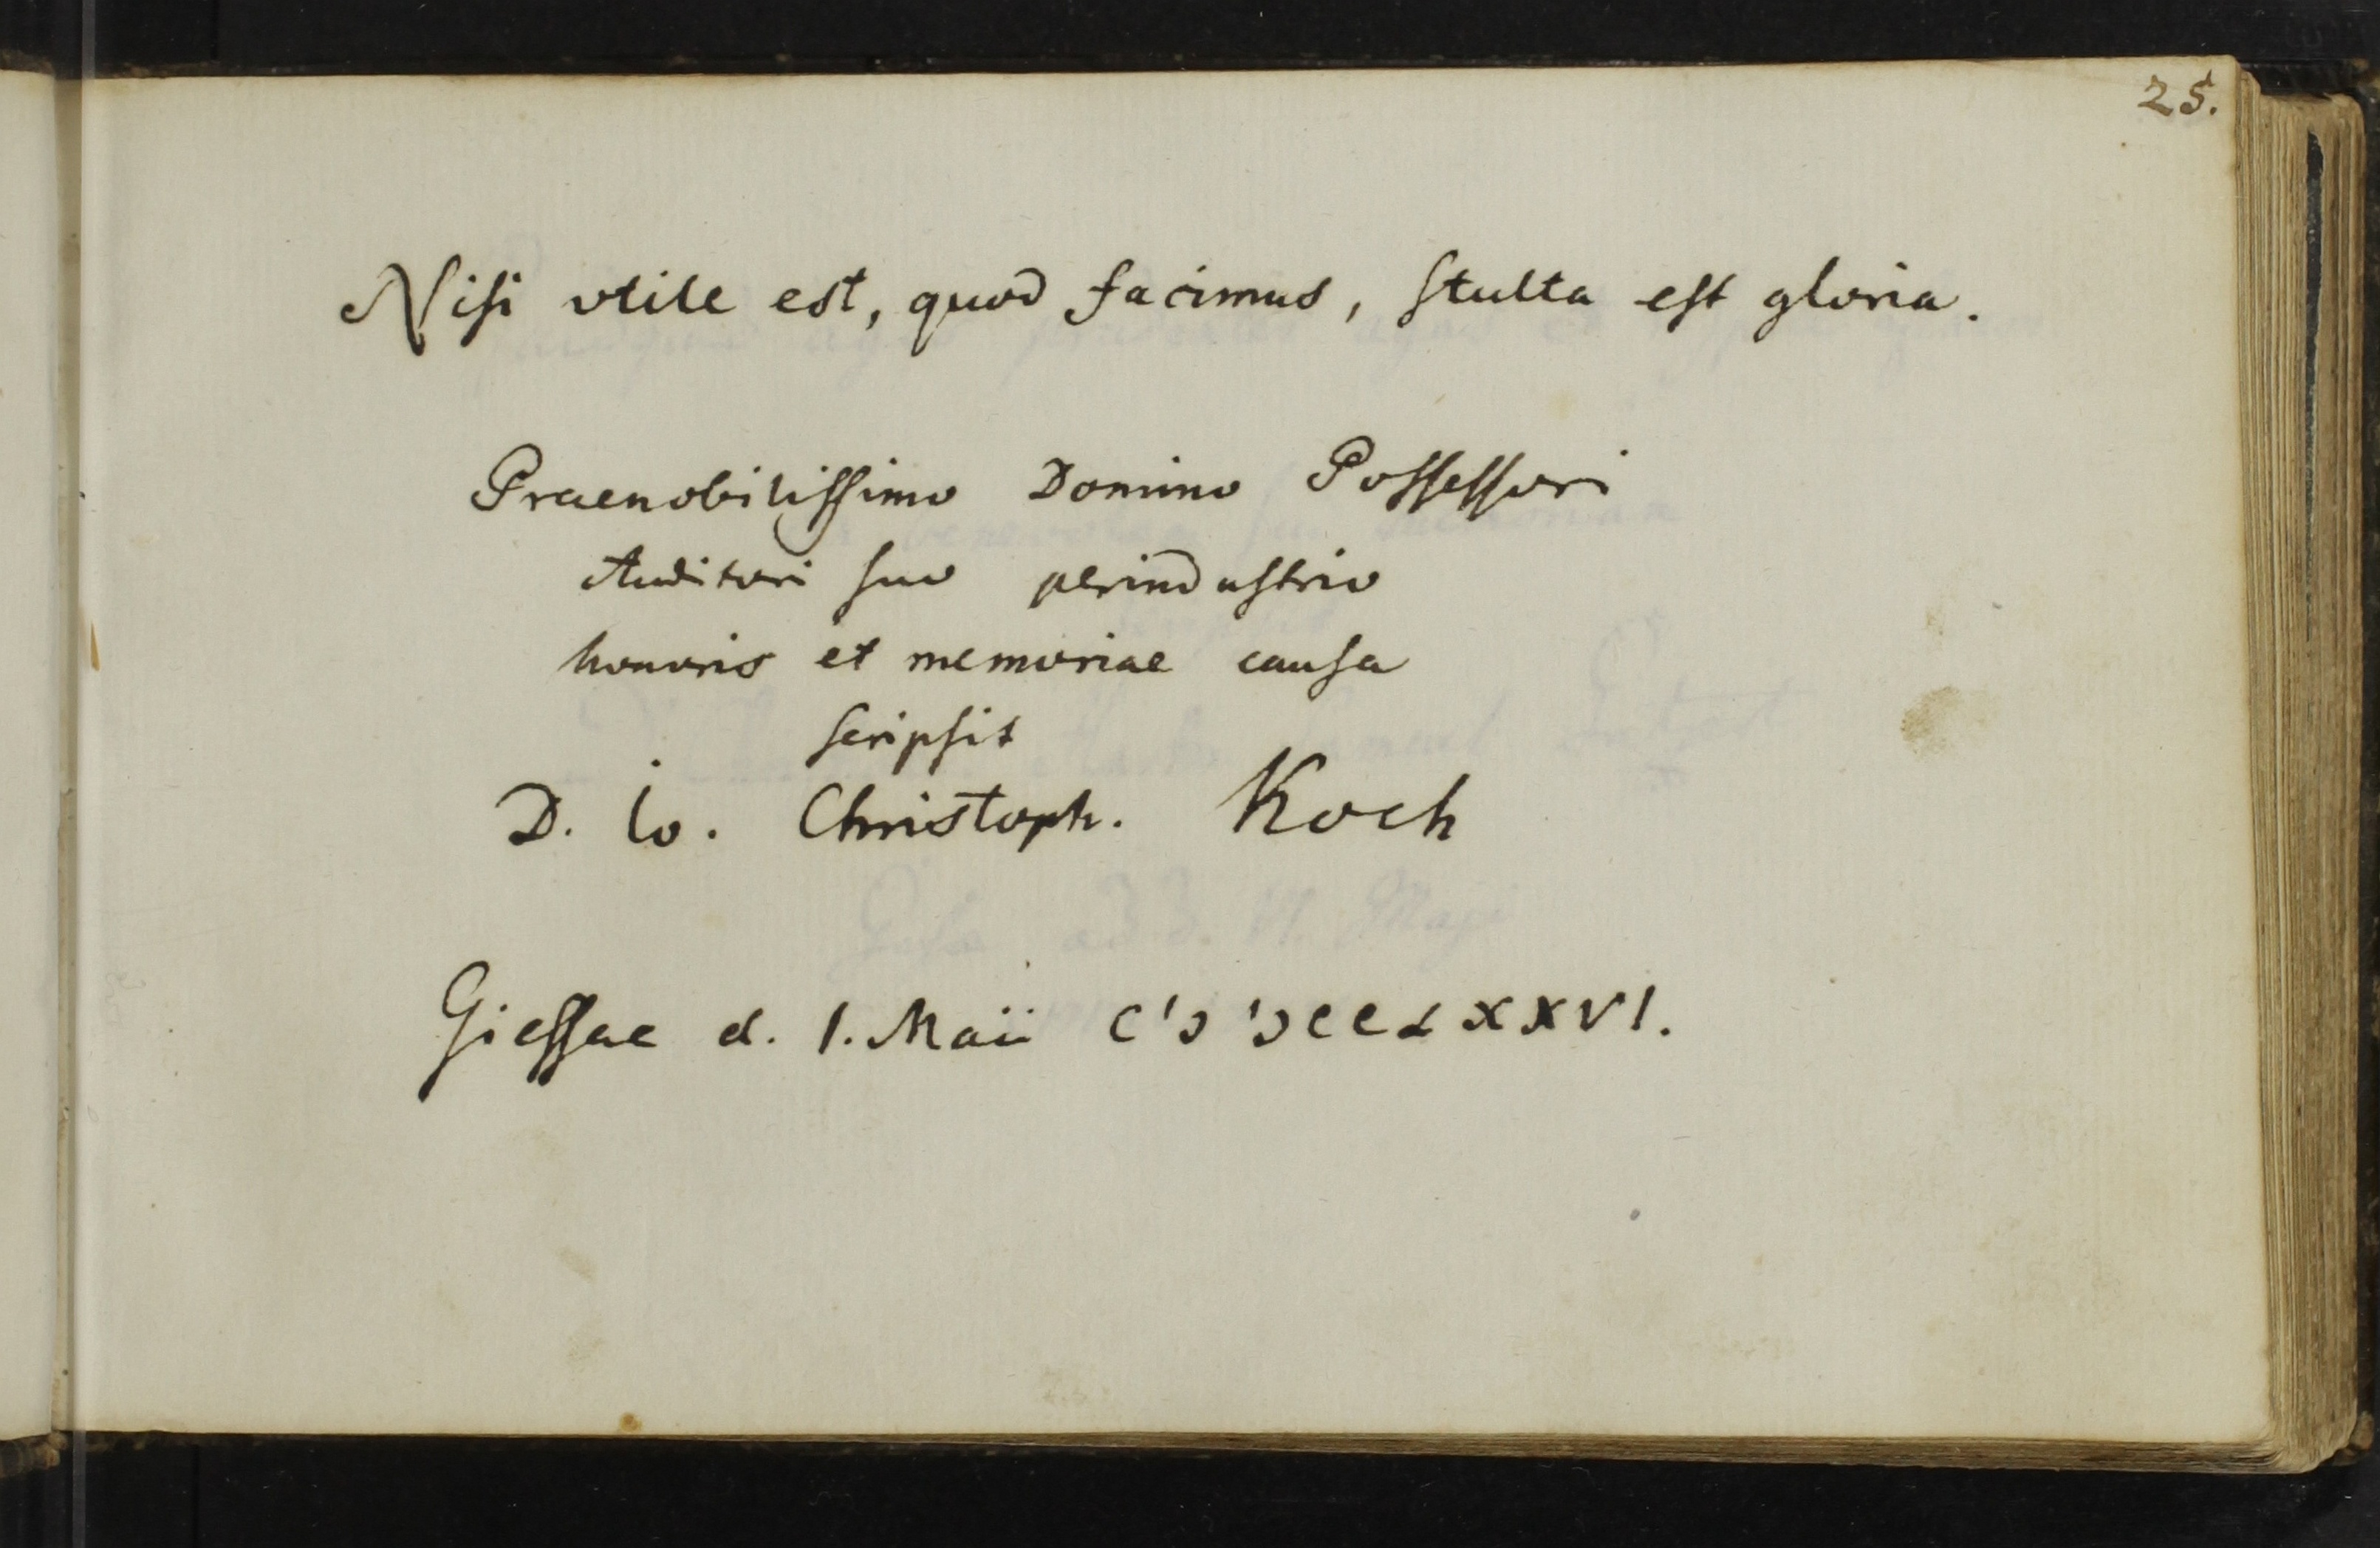 25.
Nisi vtile est, quod facimus, stulta est gloria.
Praenobilissimo Domino Possessori
Auditori suo perindustrio
honoris et memoriae causa
scripsit
D. Io. Christoph. Koch
Giessae d. 1. Maii CIↃ IↃCCLXXVI.